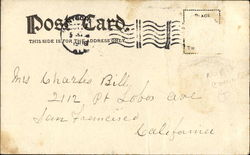 Post Card.
THIS SIDE IS FOR THE ADDRESS ONLY.
PLACE
Mrs Charles Bill
2112 Pt Lobos ave
San Francisco
California